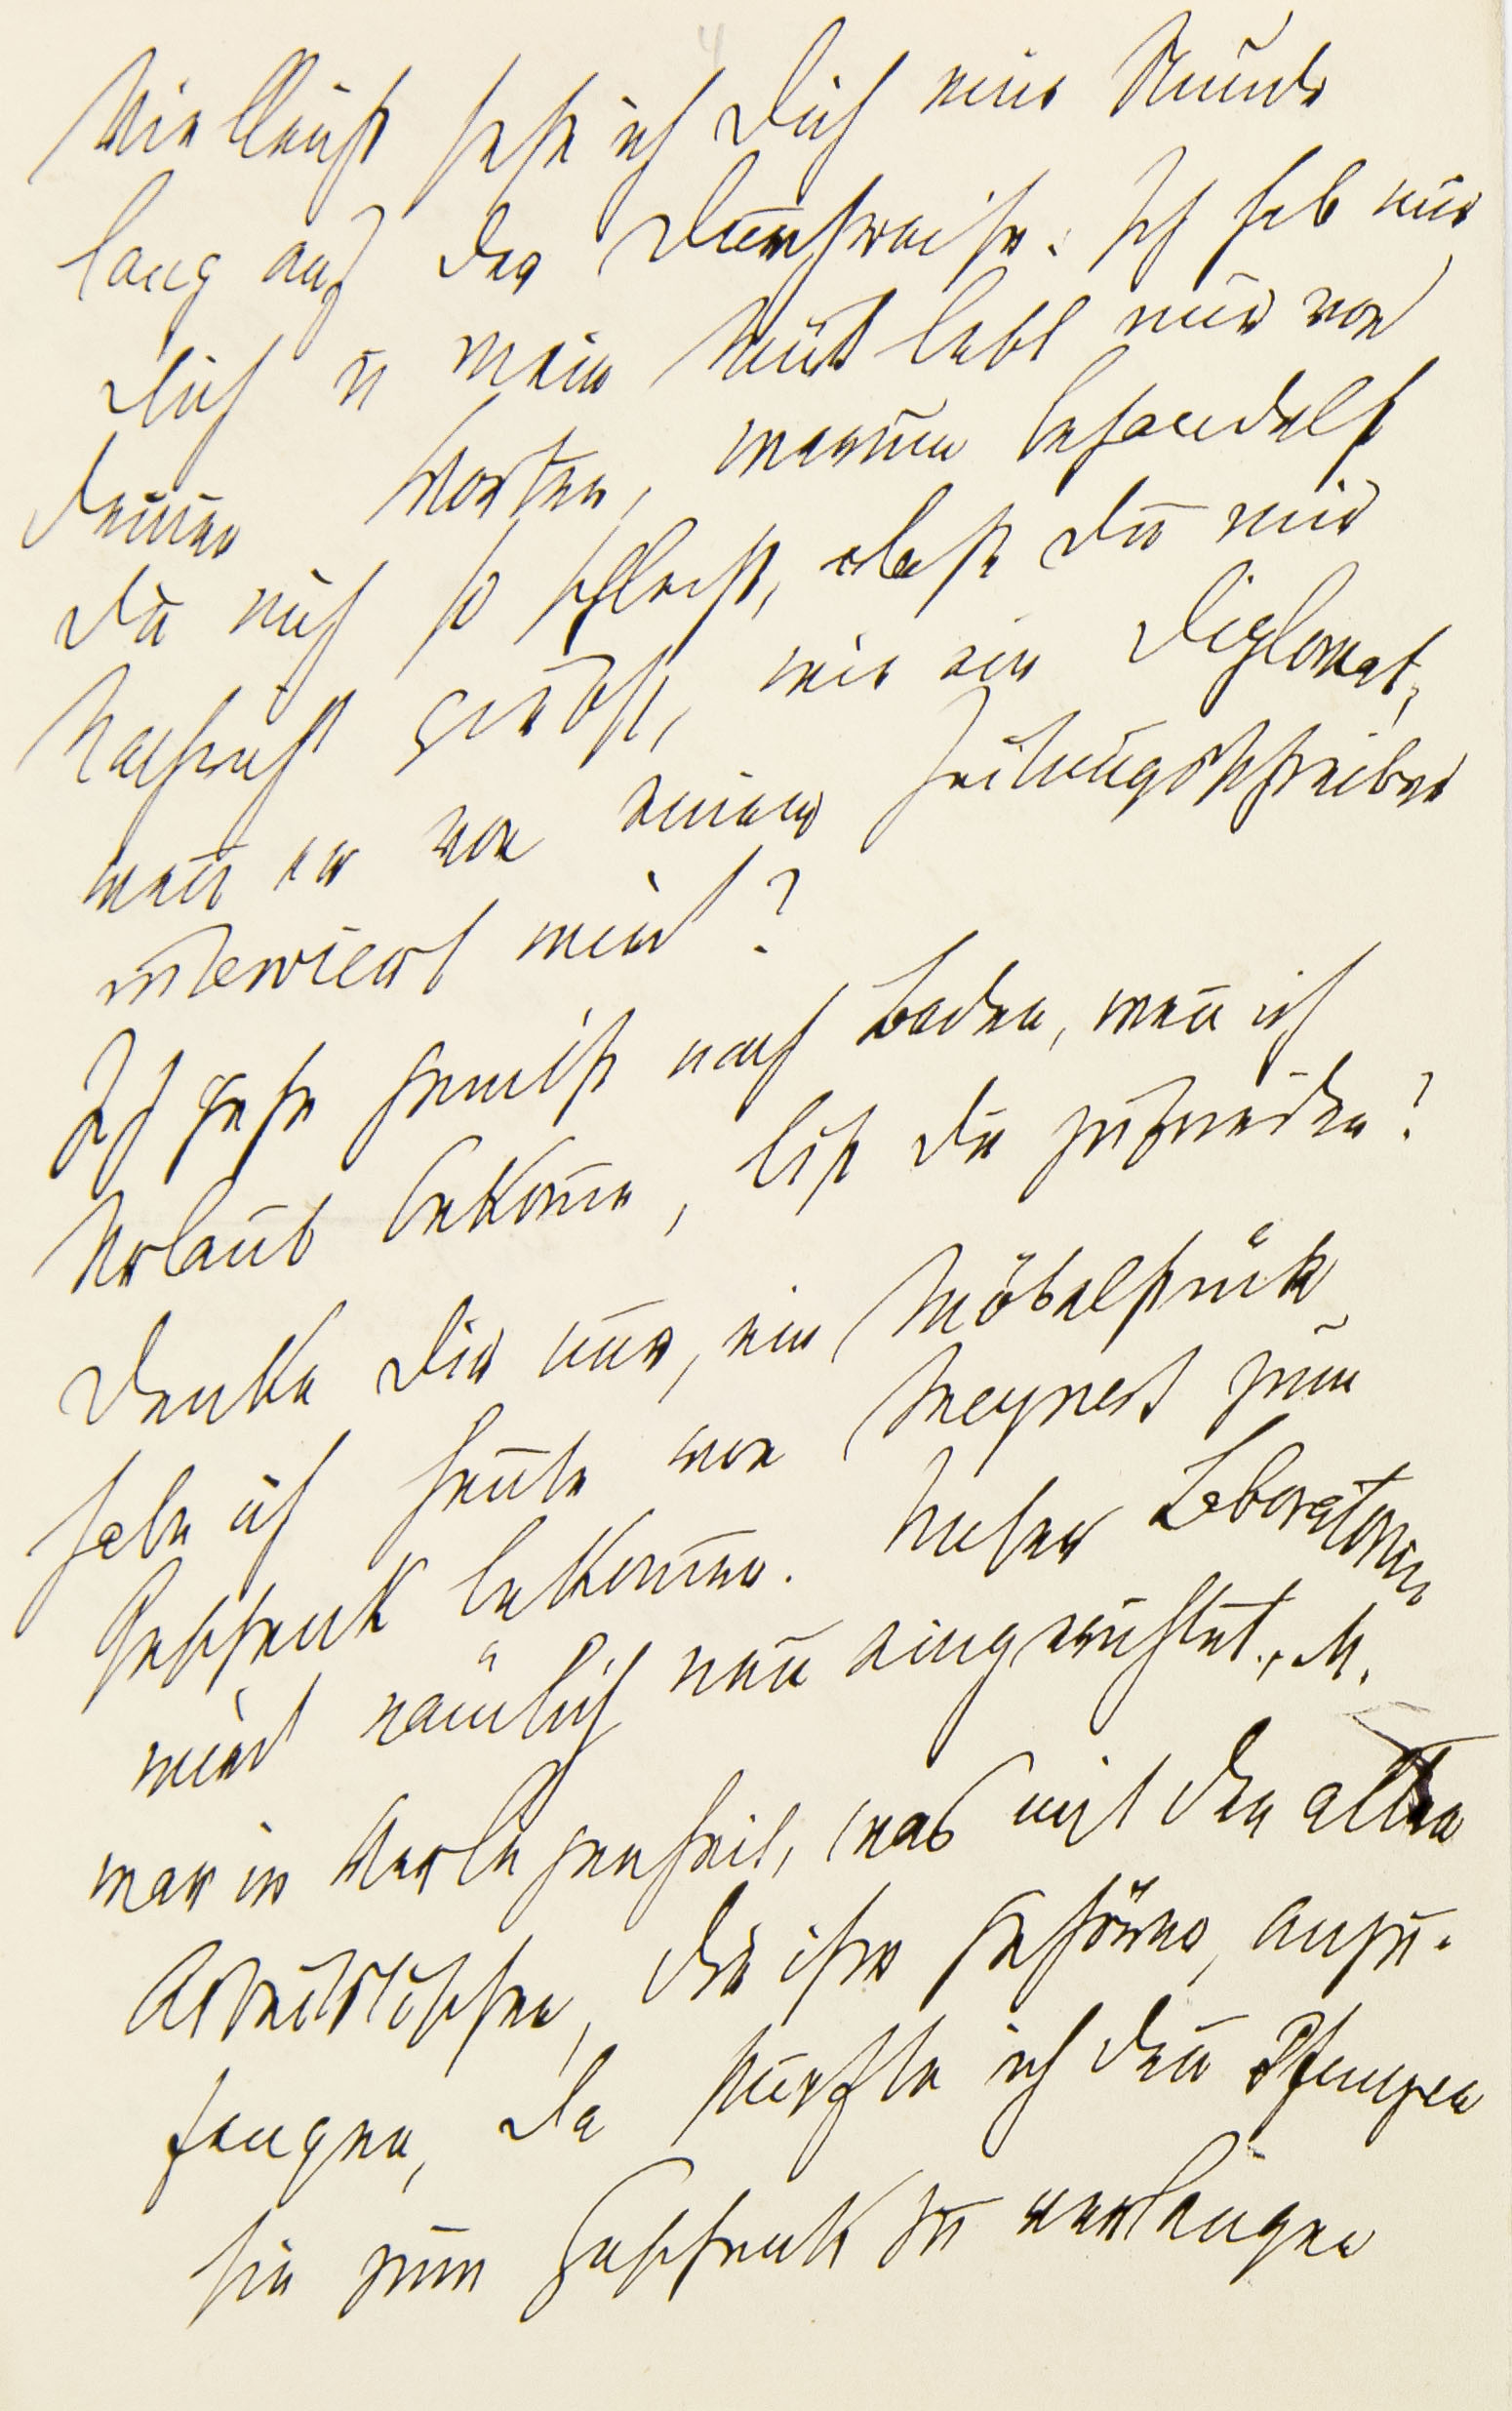 Vielleicht sehe ich Dich eine Stunde
lang auf der Durchreise. Ich hab nur
Dich u mein Mut lebt nur von
Deinen Worten, warum behandelst
Du mich so schlecht, daß Du mir
Nachricht gibst, wie ein Diplomat,
wen̄ er von einem Zeitungsschreiber
interviewt wird?
Ich gehe gewiß nach Baden, wen̄ ich
Urlaub bekom̄e, bist Du zufrieden?
Denke Dir nur, ein Möbelstück
habe ich heute von Meynert zum
Geschenk bekom̄en. Unser Laboratorium
wird nämlich neu eingerichtet, M.
war in Verlegenheit, was mit den alten
Arbeitstischen, die ihm gehören, anzu-
fangen, da durfte ich den
sie zum Geschenk zu verlangen